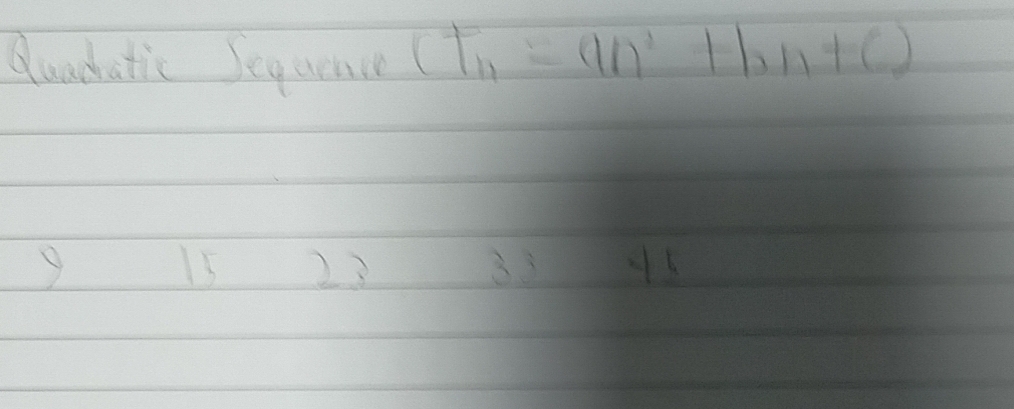 Quadratic Sequence (Tn = an² + bn + c)
9 15 23 33 45